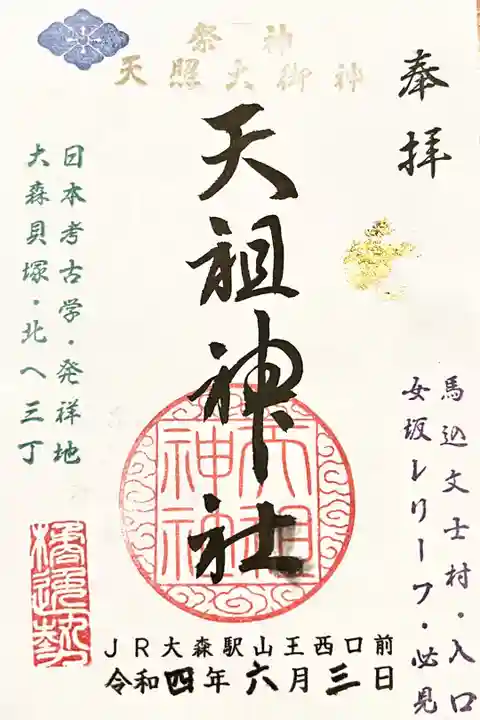 奉拝
祭神
天照大御神
天祖神社
天祖
神社
馬込文士村・入口
女坂レリーフ・必見
日本考古学・発祥地
大森貝塚・北へ三丁
JR大森駅山王西口前
令和四年六月三日